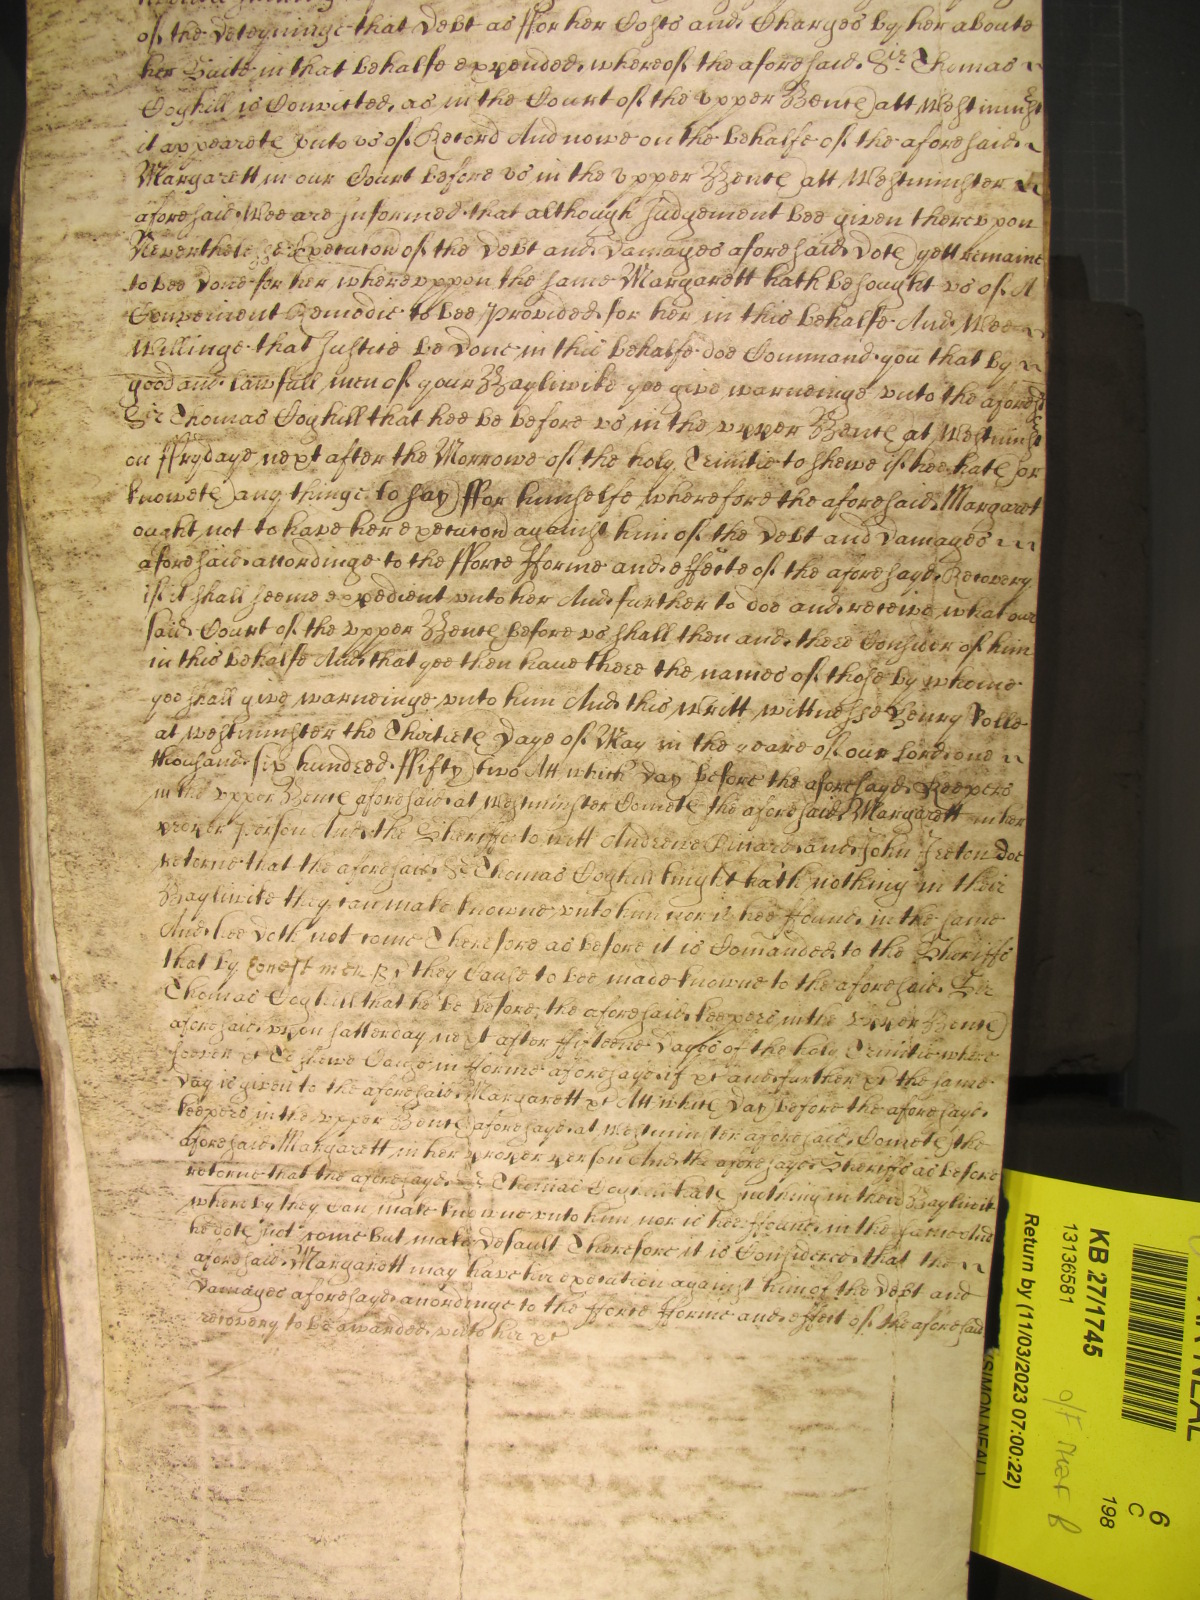 of the deteyninge that debt as ffor her Costs and Charges by her aboute
her Suite in that behalfe expended, whereof the aforesaid Sir Thomas
Coghill is Convicted, as in the Court of the Upper Bench att Westminst
it appeareth unto us of Record And nowe on the behalfe of the aforesaid
Margarett in our Court before us in the Upper Bench att Westminster
aforesaid Wee are informed that although Judgement bee given thereupon
Neverthelesse Execucion of the debt and Damages aforesaid doth yett remaine
to bee done for her whereuppon the same Margarett hath besought us of A
Convenient Remedie to bee provided for her in this behalfe And Wee
Willinge that Justice be done in this behalfe doe Command you that by
good and lawfull men of your Baylwike yee give warneinge unto the aforesd
Sir Thomas Coghill that hee be before us in the upper Bench at Westminst
on ffrydaye next after the Morrowe of the holy Trinitie to shewe if hee hath or
knoweth any thinge to say ffor himselfe wherefore the aforesaid Margaret
ought not to have her execucion against him of the debt and damages
aforesaid accordinge to the fforce fforme and effecte of the aforesayd Recovery
if it shall seeme expedient unto her And further to doe and receive what our
said Court of the upper Bench before us shall then and there Consider of him
in this behalfe And that yee then have there the names of those by whome
yee shall give warneinge unto him And this Writt wittnesse Henry Rolle
at Westminster the Thirtieth Daye of May in the yeare of our Lord one
thousand six hundred ffifty two Att which day before the aforesayd Keepers
in the upper Bench aforesaid at Westminster Cometh the aforesaid Margarett in her
proper person And the Sheriffe to witt Andrewe and John doe
retorne that the aforesaid Sr Thomas Coghill knight hath nothing in their
Baylwike they can make knowne unto him nor is hee ffound in the same
And hee doth not come Therefore as before it is Comanded to the Sheriffs
that by honest men &c they Cause to bee made knowne to the aforesaid Sir
Thomas Coghill that he be before the aforesaid keepers in the Upper Bench
aforesaid upon Satterday next after ffifteene dayes of the holy Trinitie where
soever &c To shewe Cause in forme aforesayd if &c and further &c the same
day is given to the aforesaid Margarett &c Att which day before the aforesayd
keepers in the upper Bench aforesayd at Westminster aforesaid Cometh the
aforesaid Margarett in her proper person And the aforesayd Sheriffs as before
retorne that the aforesayd Sr Thomas Coghill hath nothing in their Baylwick
whereby they can make knowne unto him nor is hee ffound in the same And
he doth not come but makes default Therefore it is Considered that the
aforesaid Margarett may have her execution against him of the debt and
Damages aforesayd accordinge to the fforce fforme and effect of the aforesaid
recovery to be awarded unto her &c
KB 27/1745
13136581
Return by (11/03/2023 07:00:22)
(SIMON NEAL)
6
C
198